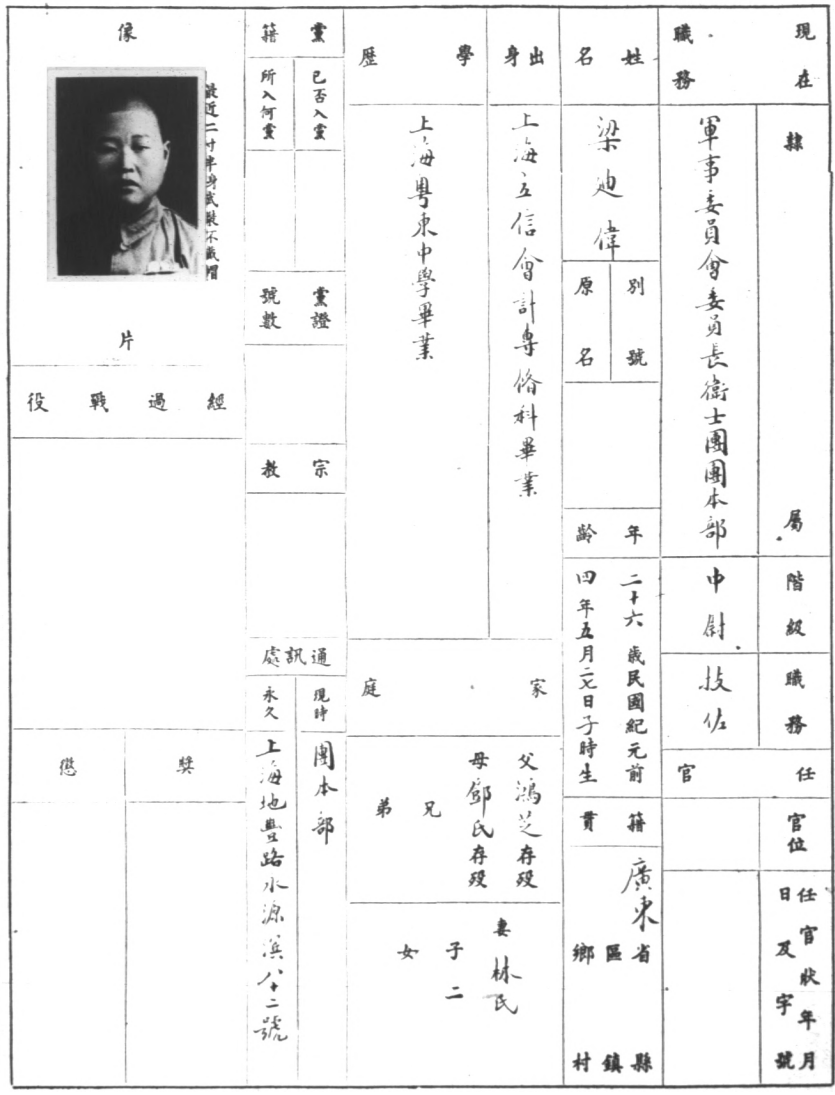 現在職務
隸屬
軍事委員會委員長衛士團團本部
階級
中尉
職務
技佐
任官
官位
任官狀年月日及字號
姓名
梁迪偉
別號
原名
年齡
二十六歲民國紀元前
四年五月二七日子時生
籍貫
廣東省
縣
區
鎮
鄉
村
出身
上海立信會計專脩科畢業
學歷
上海粵東中學畢業
家庭
父鴻芝存歿
母鄧氏存歿
兄
弟
妻林氏
子二
女
黨籍
已否入黨
所入何黨
黨證號數
宗教
通訊處
現時
團本部
永久
上海地豐路水源浜八十二號
像片
最近二寸半身武裝不戴帽
經過戰役
獎
懲